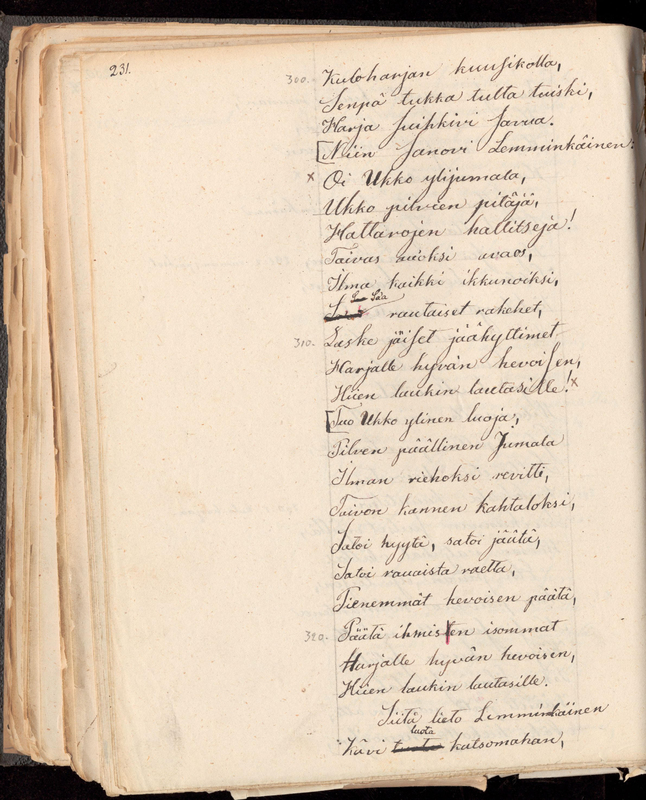 231.
300. Kuloharjan kuusikolla,
Senpä tukka tulta tuiski,
Harja suihkivi savua.
[Niin sanovi Lemminkäinen:
x Oi Ukko ylijumala,
Ukko pilvien pitäjä,
Hattarojen hallitseja!
Taivas auoksi avaos,
Ilma kaikki ikkunoiksi,
Sa'a rautaiset rakehet,
310. Laske jäiset jäähyttimet
Harjalle hyvän hevoisen,
Hiien laukin lautasille! x
[Tuo Ukko ylinen luoja,
Pilven päällinen Jumala
Ilman riehoksi revitti,
Taivon kannen kahtaloksi,
Satoi hyytä, satoi jäätä,
Satoi rauaista raetta,
Pienemmät hevoisen päätä,
320. Päätä ihmisten isommat
Harjalle hyvän hevoisen,
Hiien laukin lautasille.
Siitä lieto Lemminkäinen
Kävi luota katsomahan,